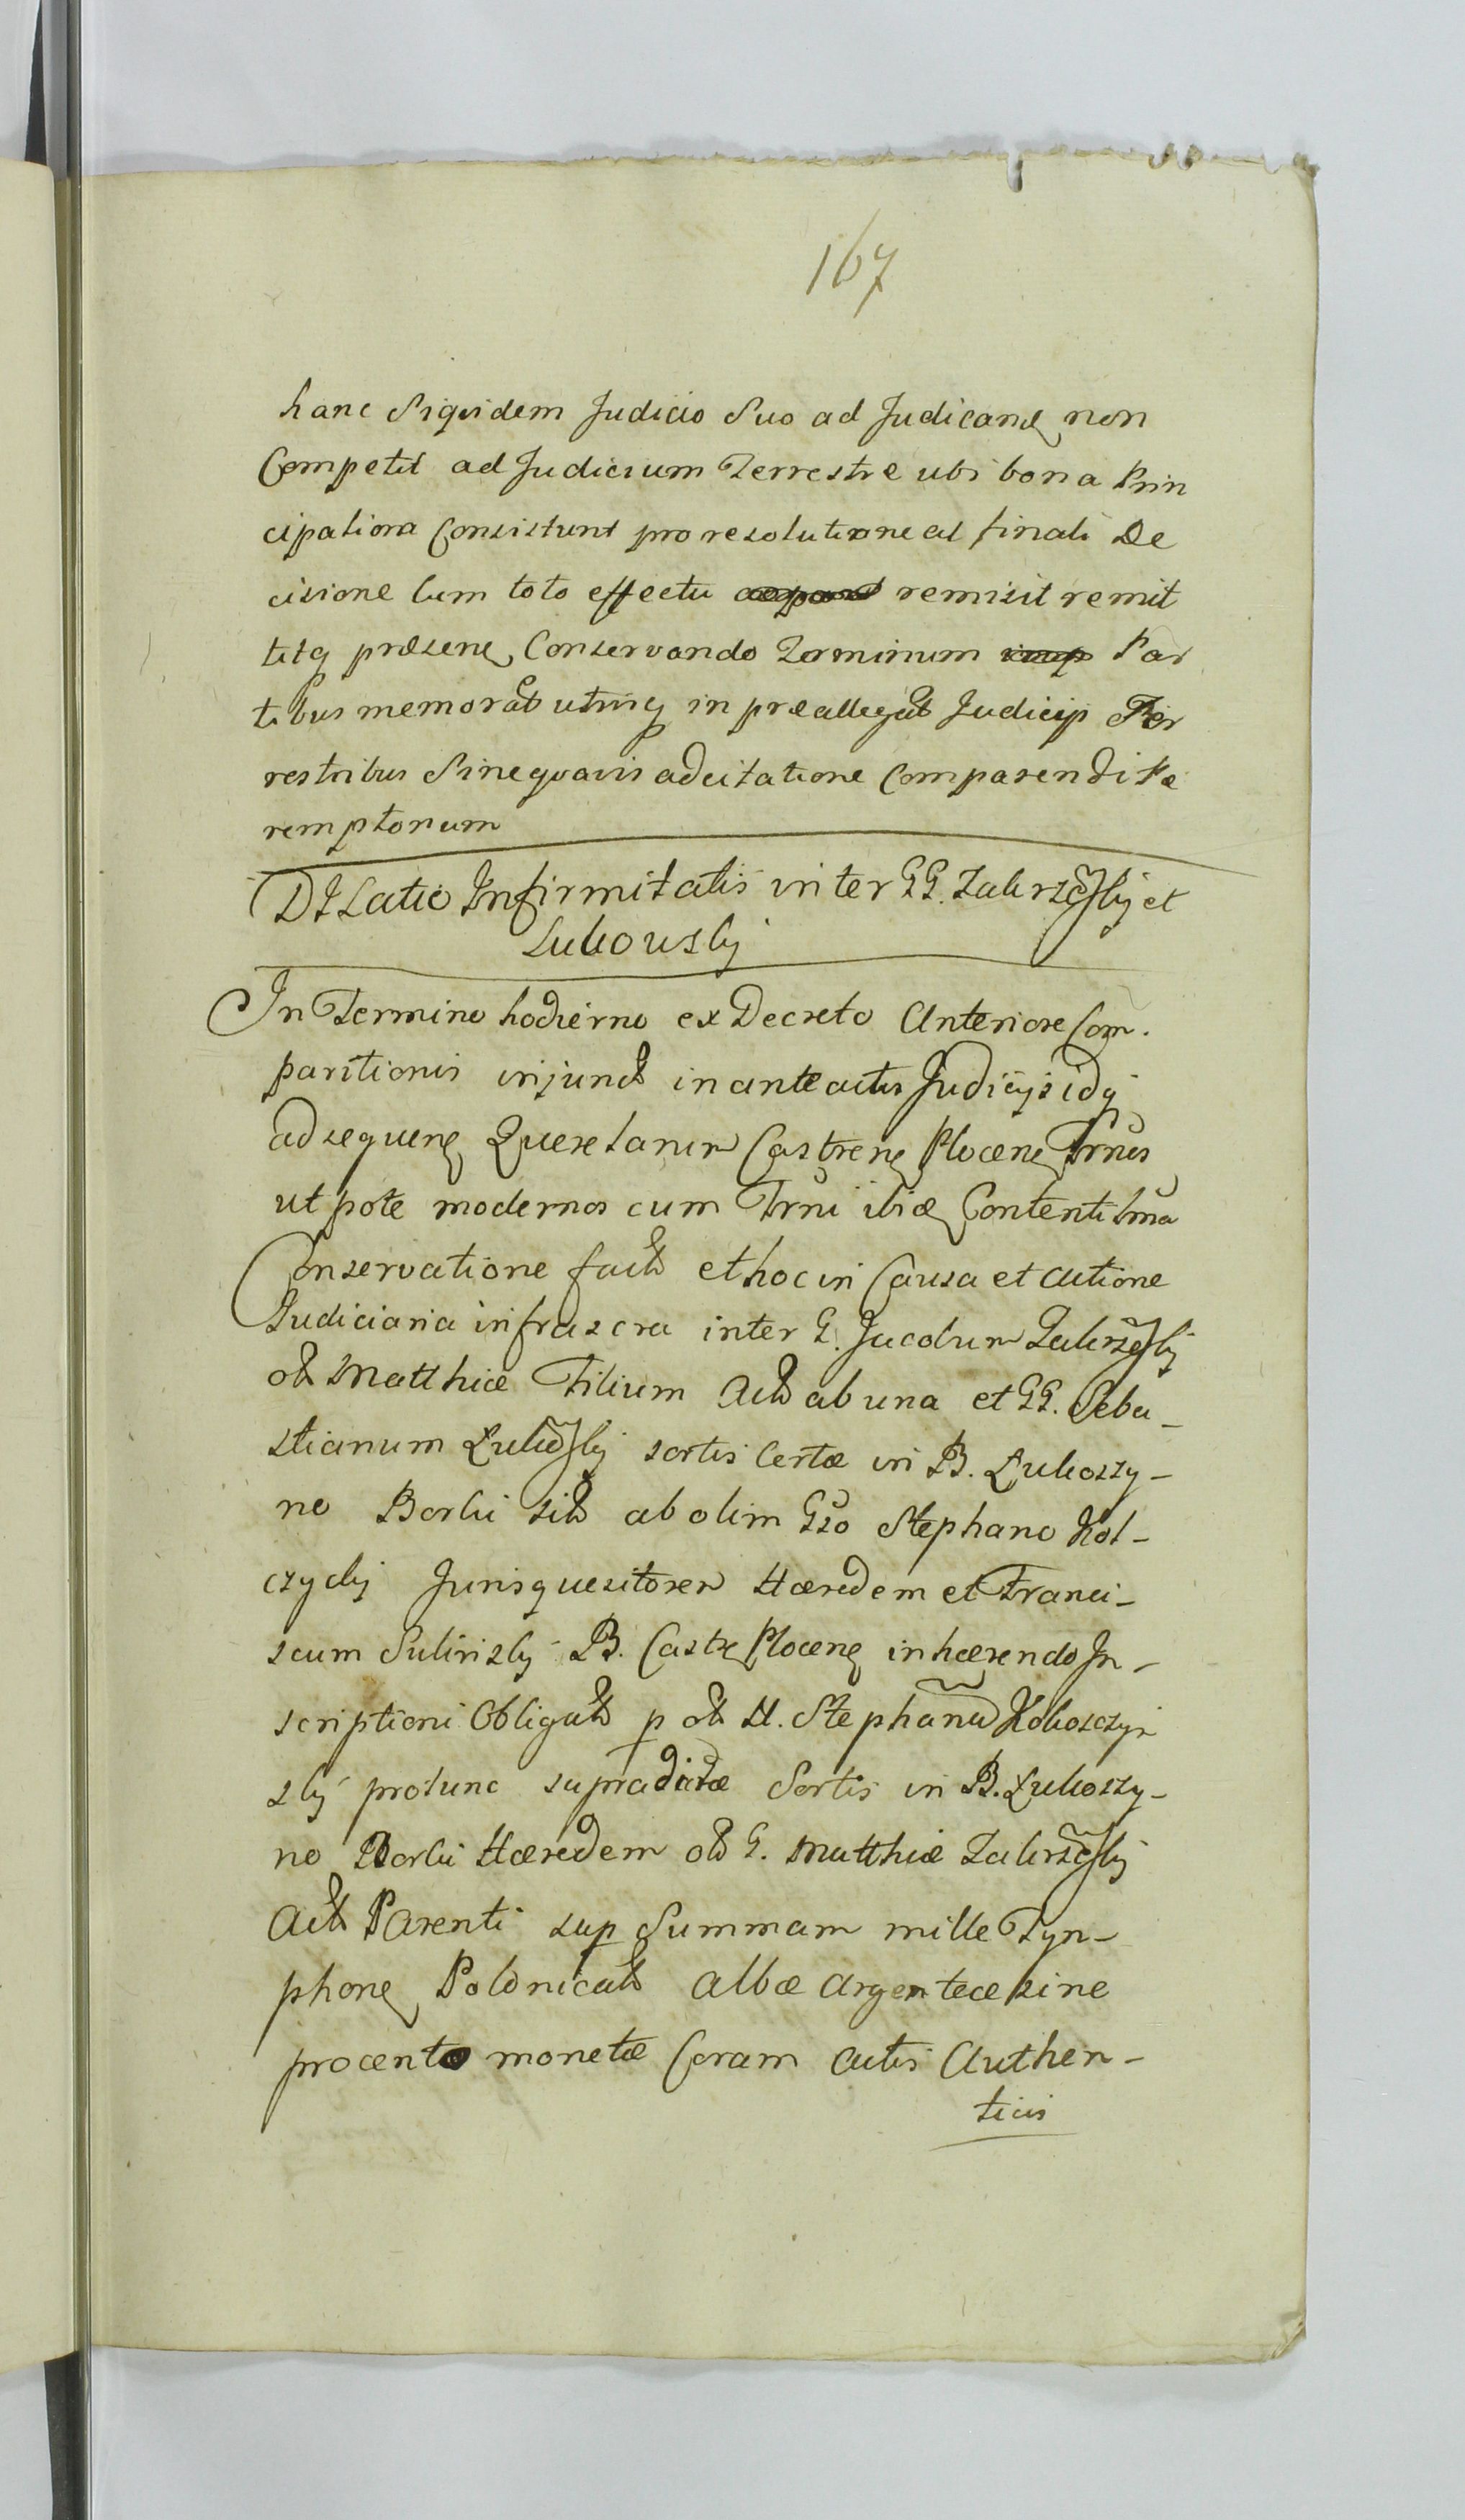 167
hanc Siqvidem Judicio Suo ad Judicand non
Competit ad Judicium Terrestre ubi bona Prin
cipaliora Consistunt pro resolutione at finali De
cisione Cum toto effectu remisit remit
titq præsen Conservando Terminum Par
tibus memorat utriq in præallegat Judicijs Ter
restribus Sine qvavis adcitatione Comparendi Pe
remptorium
Dilatio Infirmitatis inter GG. Zakrzeski et
Lukowski
In Termino hodierno ex Decreto Anteriore Com.
paritionis injunct in anteactis Judicijs idq
ad sequen Querelarum Castren Plocen Trnos
utpote modernos cum Trni ibid Contenti
Conservatione fact et hoc in Causa et actione
Judiciaria infrascra inter G. Jacobum Zakrzeski
olt Matthiæ Filium Act ab una et GG. Seba-
stianum Lukoski sortis Certæ in B. Lukoszy-
no Borki sit ab olim Gso Stephano Kol-
czycki Jurisquesitorem Hæredem et Franci-
scum Sulinski B. Castr Plocen inhærendo In-
scriptioni Obligat p olt M. Stephanu Kokoszczyn
ski protunc supradictæ Sortis in B. Lukoszy-
no Borki Hæredem olt G. Matthiæ Zakrzeski
Act Parenti sup Summam mille Tyn-
phon Polonicalt Albæ argenteæ sine
procento monetæ Coram actis Authen-
ticis